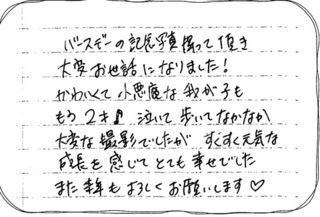 バースデーの記念写真撮って頂き
大変お世話になりました！
かわいくて小悪魔な我が子も
もう2才♪ 泣いて歩いてなかなか
大変な撮影でしたが すくすく元気な
成長を感じてとても幸せでした
また来年もよろしくお願いします♡